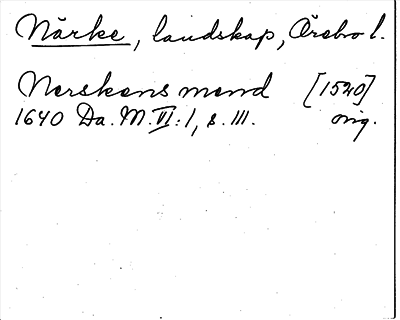 Närke, landskap, Örebro l.
Nerskens mend [1520]
1640 Da. M. VI:1, s. 111. orig.